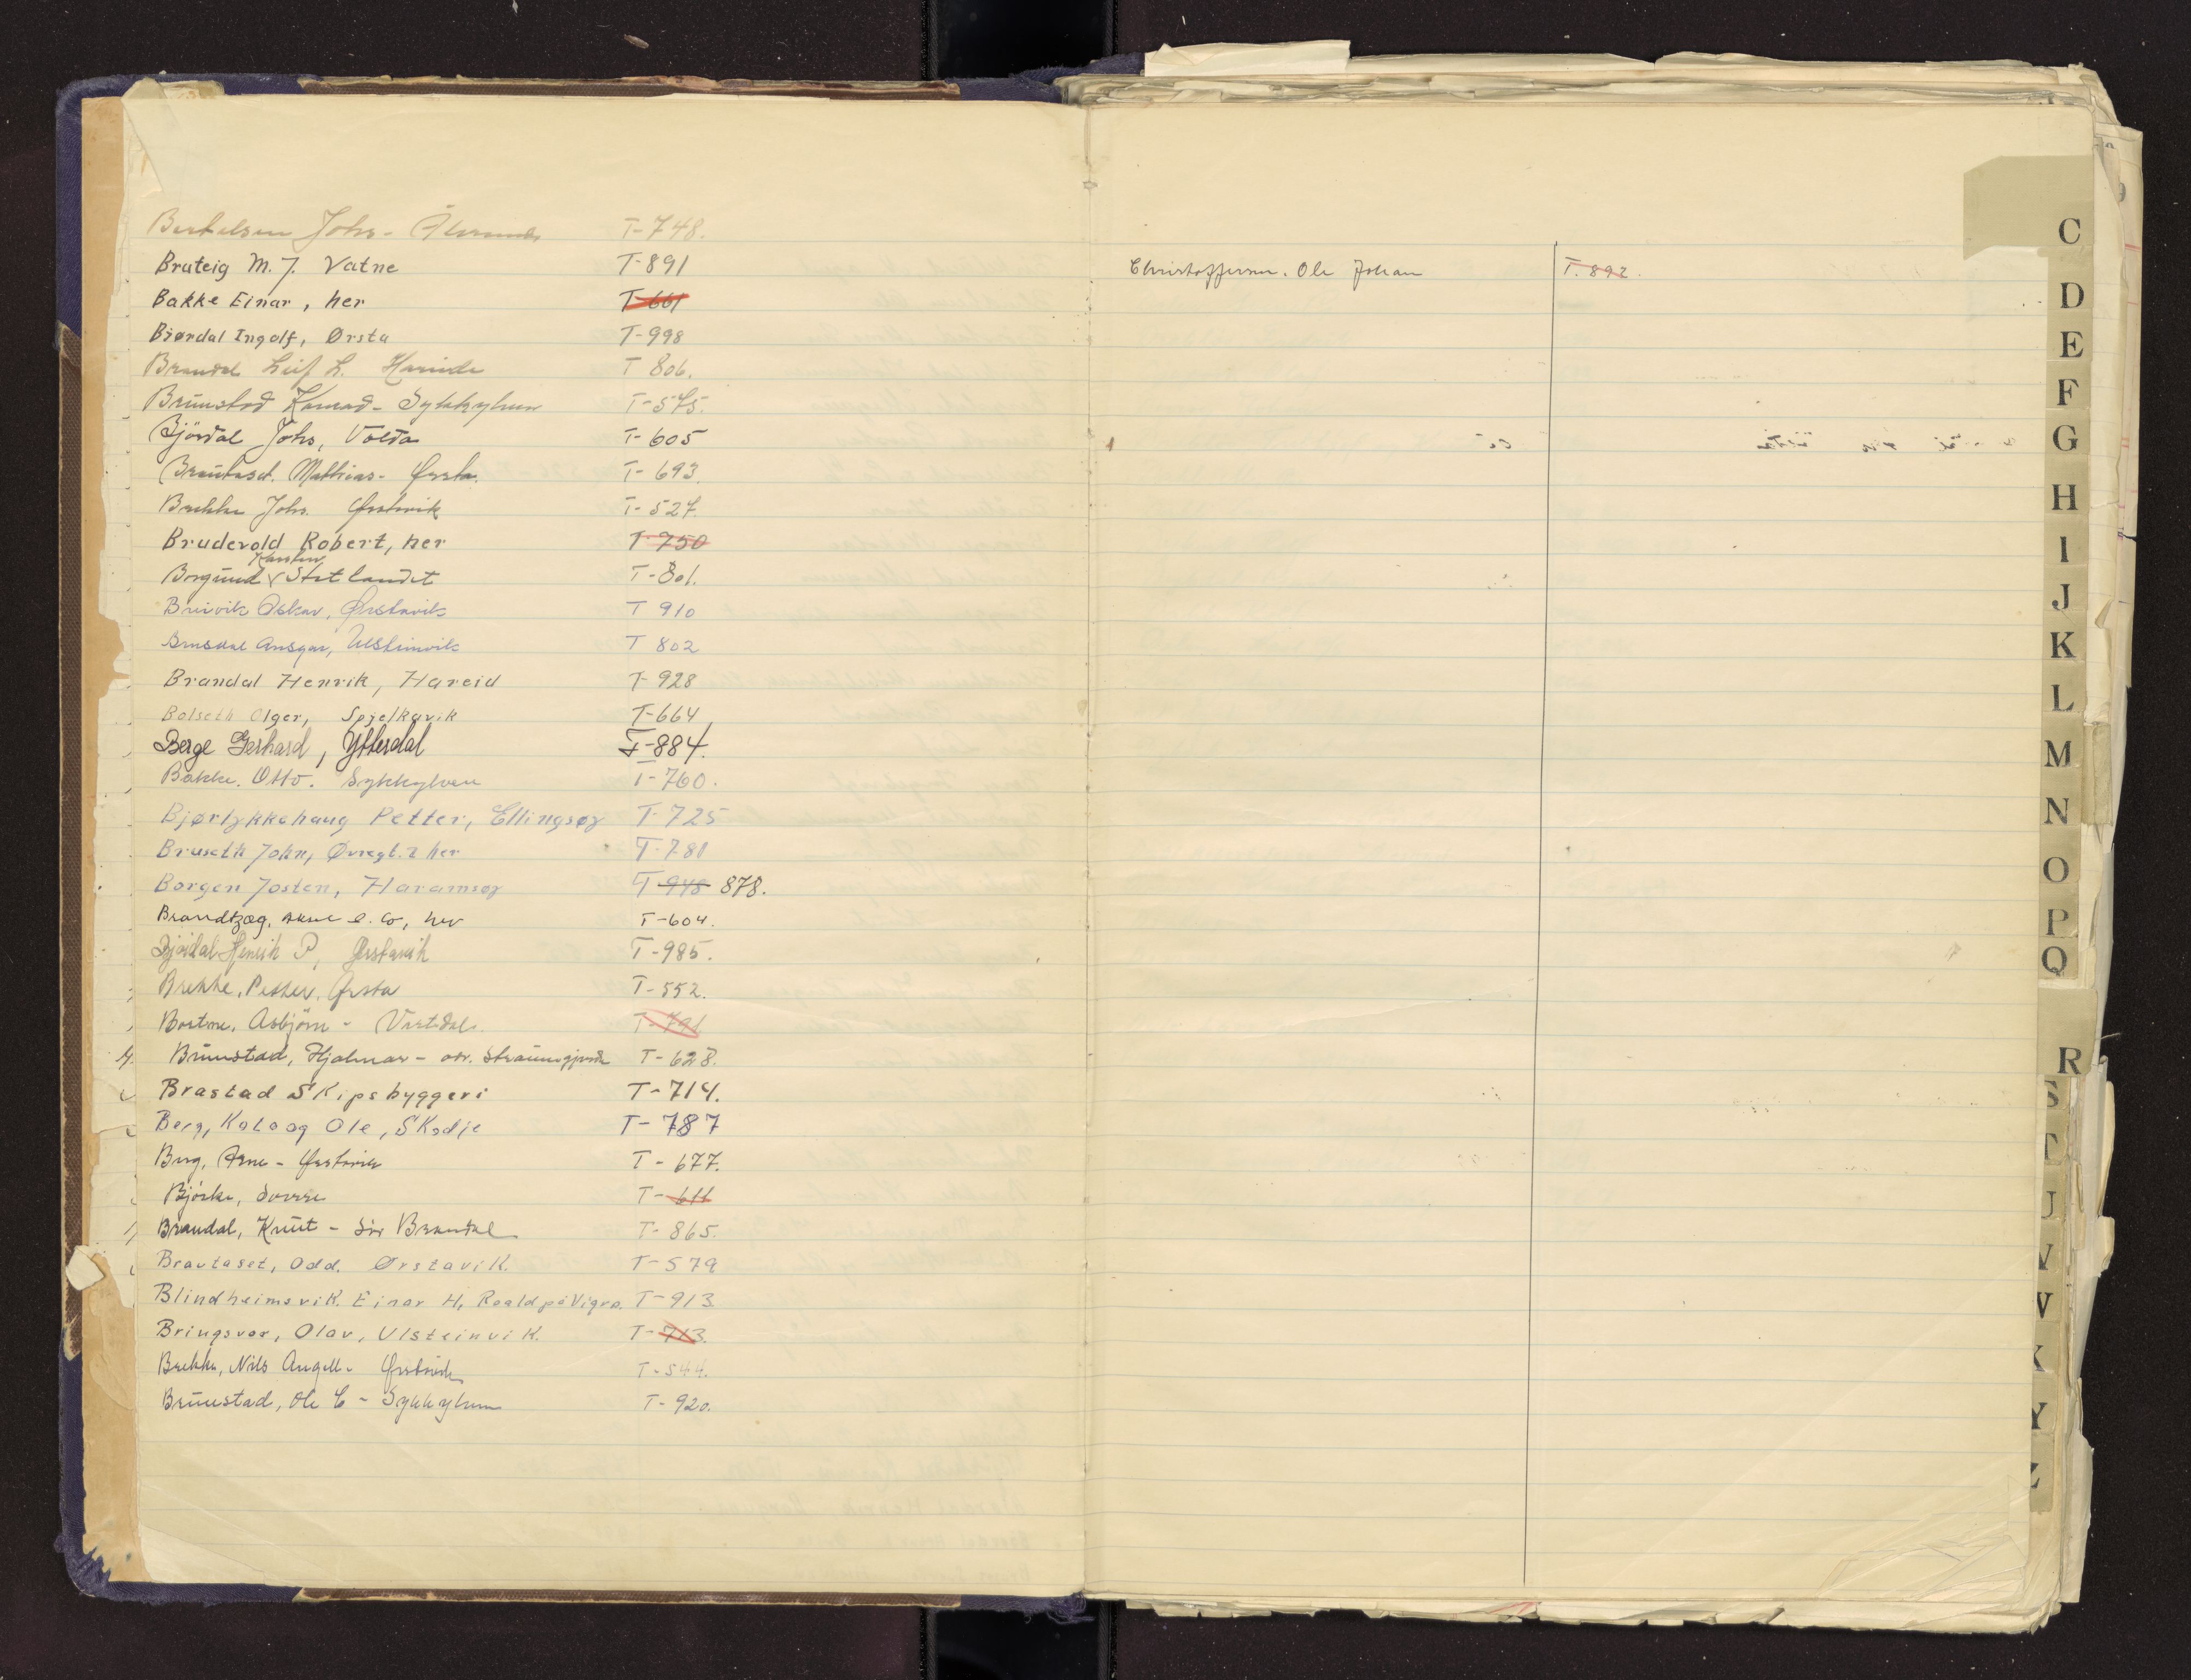 Bertelsen Johs - Ålesund T-748.
Bruteig M. J. Vatne T-891
Bakke Einar, her T-661
Bjørdal Ingolf, Ørsta T-998
Brandal Leif L. Hareide T 806.
Brünstad Konrad - Sykkylven T-575.
Björdal Johs, Volda T-605
Brautaset. Mathias - Ørsta. T-693.
Brekke Johs. Ørstavik T-527.
Brudevold Robert, her T-750
Karsten
Borgund v Støtlandet T-801.
Breivik Oskar, Ørstavik T 910
Ansgar, Ulsteinvik T 802
Brandal Henrik, Hareid T-928
Bolseth Olger, Spjelkavik T-664
Berge Gerhard, Ytterdal T-884.
Bakke. Otto. Sykkylven T-760.
Bjørlykkehaug Petter, Ellingsøy T-725
Bruseth John, Øvregt. 2 her T-781
Borgen Josten, Haramsøy T 948 878.
Brandtzæg, Arne & Co, her T-604.
Bjørdal Henrik P, Ørstavik T-985.
Brekke, Petter, Ørsta T-552.
Asbjörn - Vartdal. T-791
Brünstad, Hjalmar - adr. Straumgjerde T-628.
Brastad Skipsbyggeri T-714.
Berg, Kola og Ole, Skodje T-787
Berg, Arne - Ørstavik T-677.
Björke, Sverre T-611
Brandal, Knut - Brandal T-865.
Brautaset, Odd. Ørstavik. T-579
Blindheimsvik. Einar H, Roald på Vigra. T-913.
Bringsvor, Olav, Ulsteinvik. T-713.
Brekke, Nils Angell - Ørstavik T-544.
Brünstad, Ole E - Sykkylven T-920.
Christoffersen. Ole Johan T. 892.
C
D
E
F
G
H
I
J
K
L
M
N
O
P
Q
R
S
T
U
V
W
X
Y
Z